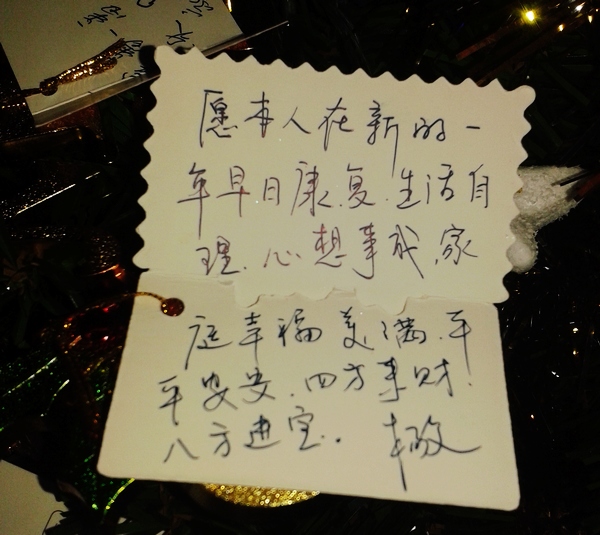 愿本人在新的一
年早日康复.生活自
理.心想事成,家
庭幸福美满.平
平安安.四方来财.
八方进宝.